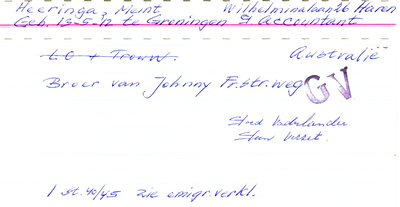 Heeringa, Meint, Wilhelminalaan 26 Haren
Geb. 15-5-'12 te Groningen Accountant
L O + Trouw.
Australië
Broer van Johnny Fr.str.weg
GV
Stred Vaderlander
Stan Verzet.
1 st. 40/45 zie emigr. verkl.